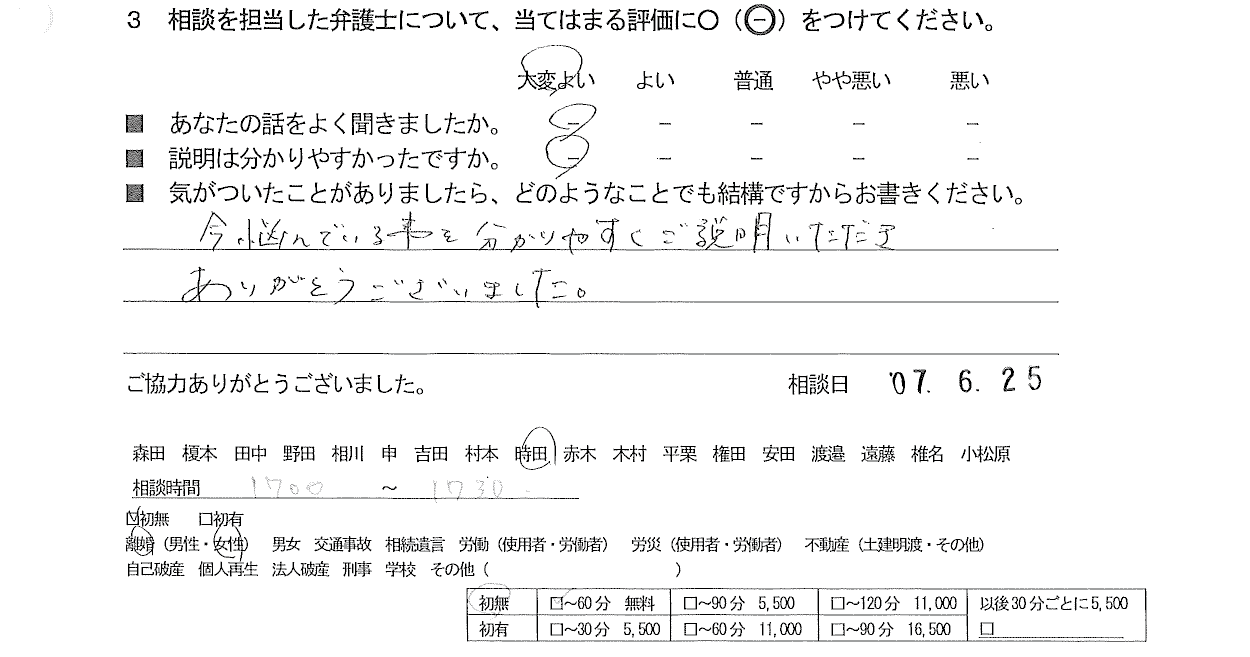 3 相談を担当した弁護士について、当てはまる評価に○(㊀)をつけてください。
大変よい よい 普通 やや悪い 悪い
■ あなたの話をよく聞きましたか。 － － － － －
■ 説明は分かりやすかったですか。 － － － － －
■ 気がついたことがありましたら、どのようなことでも結構ですからお書きください。
今悩んでいる事を分かりやすくご説明いただき
ありがとうございました。
ご協力ありがとうございました。 相談日 '07. 6. 25
森田 榎本 田中 野田 相川 申 吉田 村本 時田 赤木 木村 平栗 権田 安田 渡邉 遠藤 椎名 小松原
相談時間 1700 ～ 1730
☑初無 □初有
離婚（男性・女性） 男女 交通事故 相続遺言 労働（使用者・労働者） 労災（使用者・労働者） 不動産（土建明渡・その他）
自己破産 個人再生 法人破産 刑事 学校 その他（ ）
初無 ☑～60分 無料 □～90分 5,500 □～120分 11,000 以後30分ごとに5,500
初有 □～30分 5,500 □～60分 11,000 □～90分 16,500 □